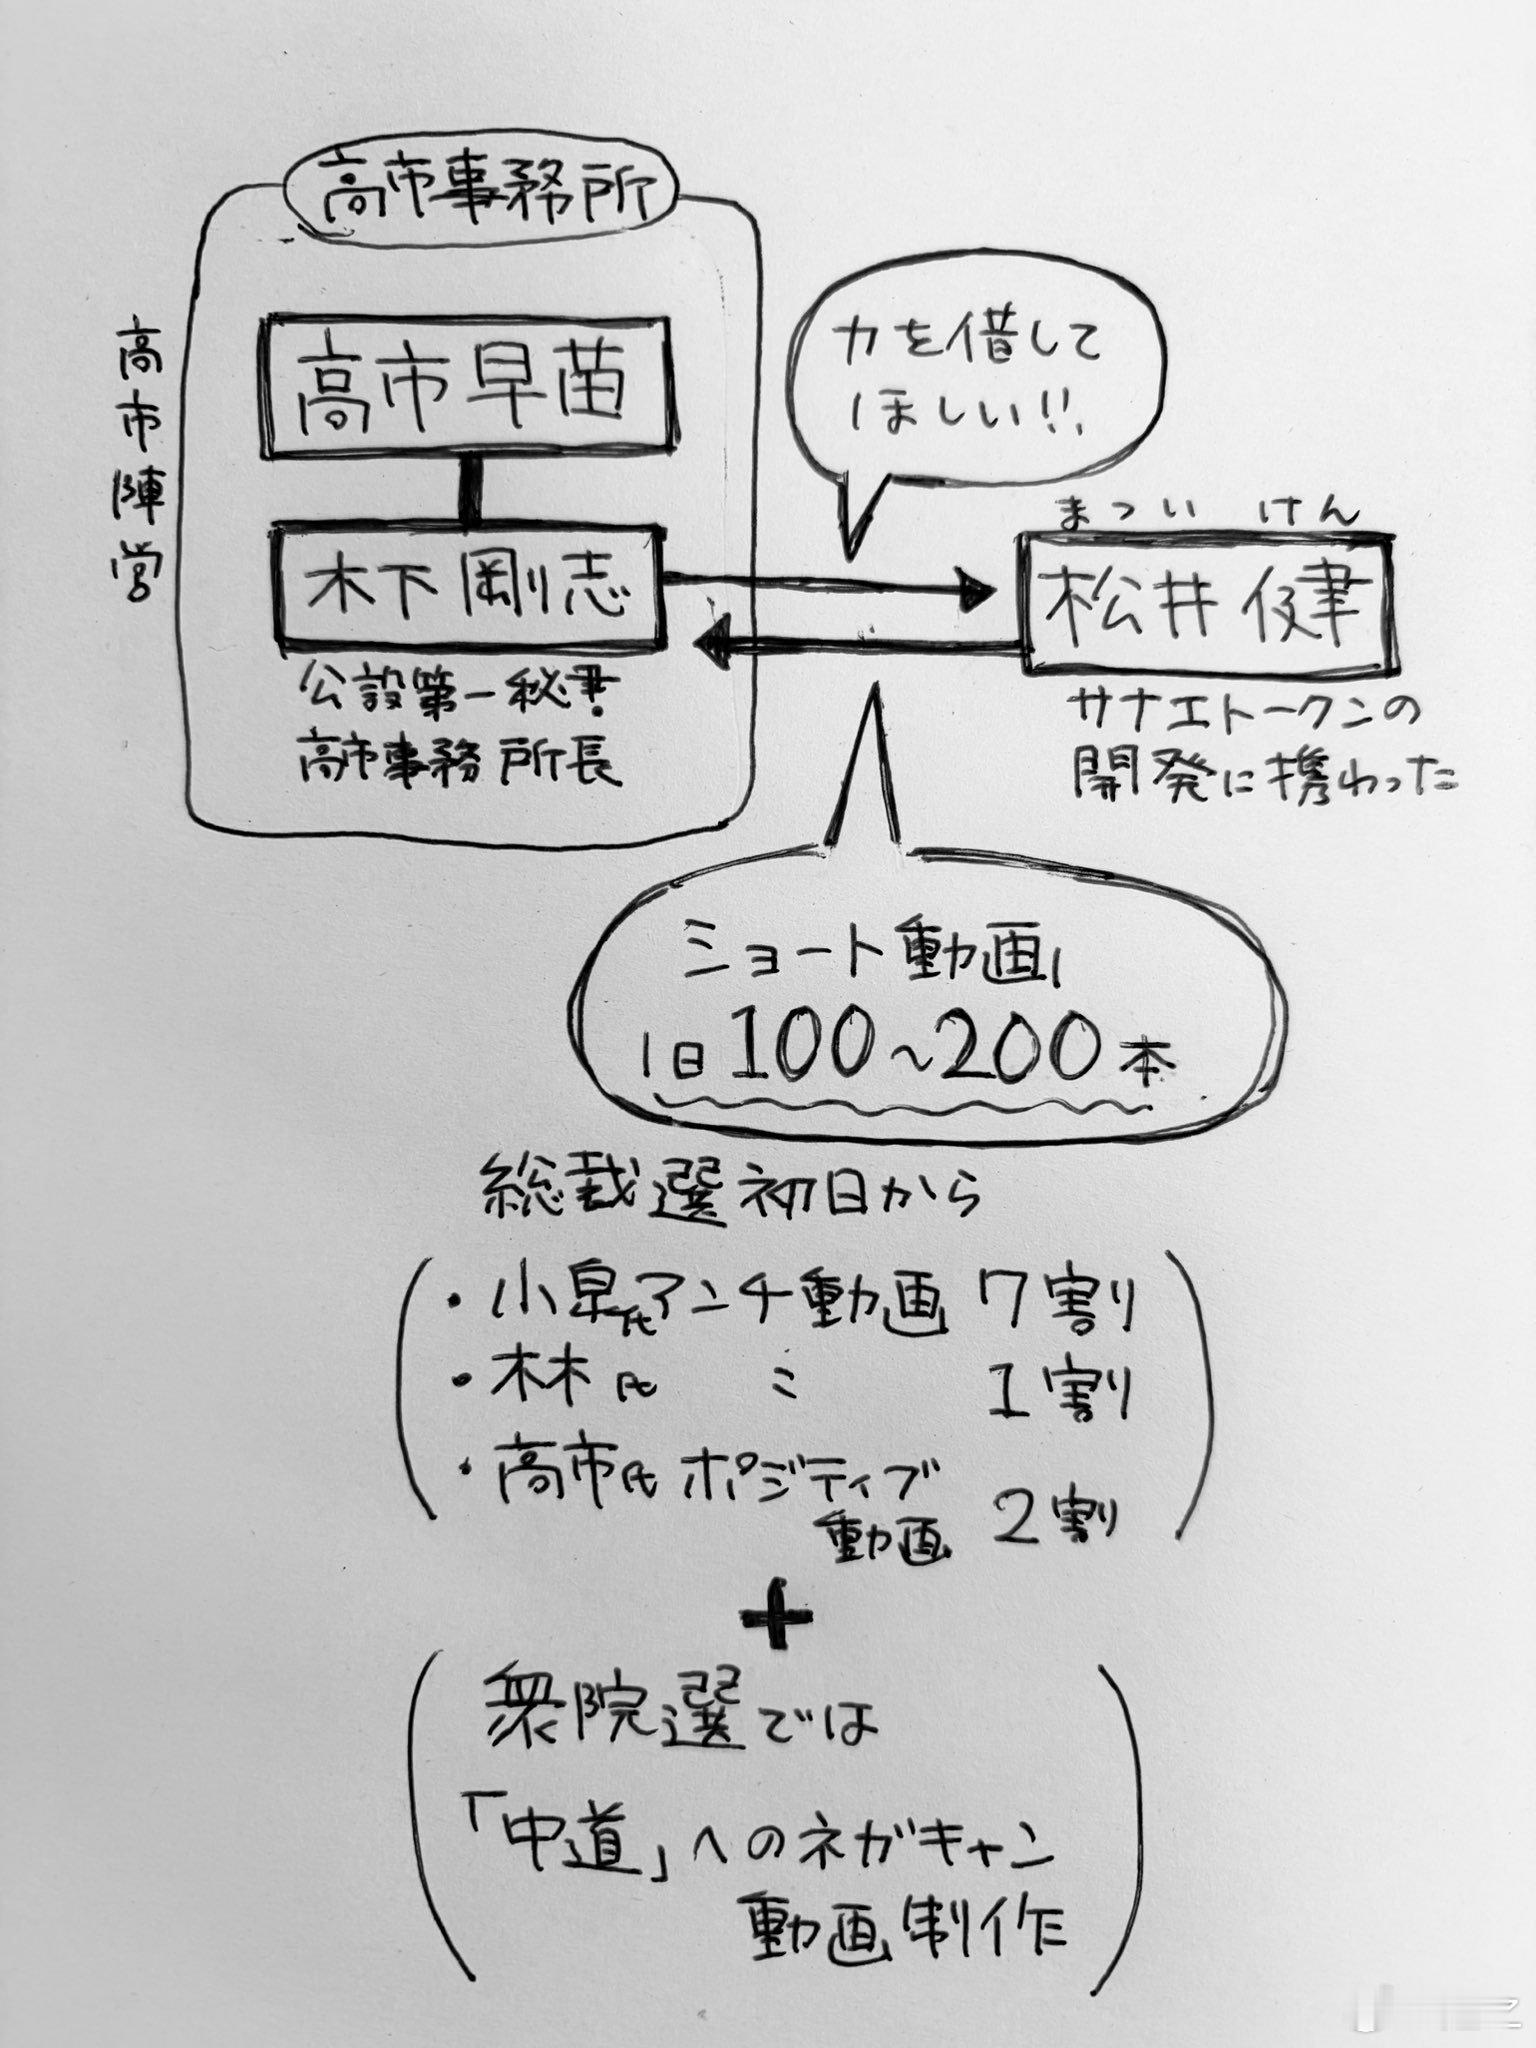 高市事務所
高市陣営
高市早苗
木下剛志
公設第一秘書
高市事務所長
力を借して
ほしい!!
まつい けん
松井健
サナエトークンの
開発に携わった
ショート動画
1日100~200本
総裁選初日から
・小泉氏アンチ動画 7割
・林氏 〃 1割
・高市氏ポジティブ
動画 2割
+
衆院選では
「中道」へのネガキャン
動画制作